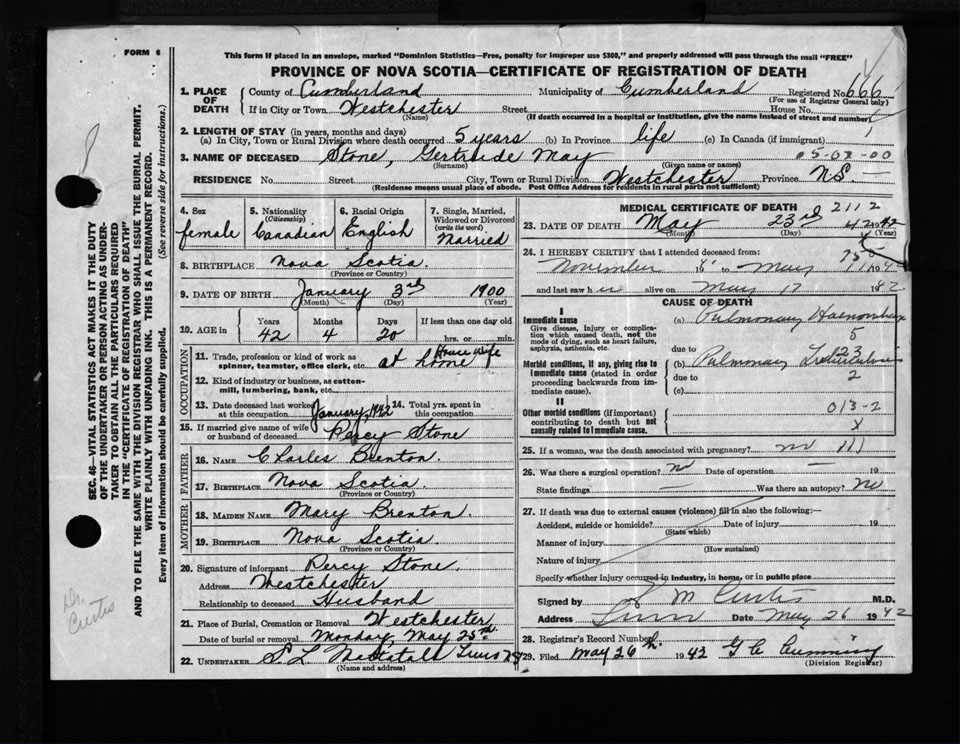 FORM 6
This form if placed in an envelope, marked "Dominion Statistics—Free, penalty for improper use $300," and properly addressed will pass through the mail "FREE"
PROVINCE OF NOVA SCOTIA—CERTIFICATE OF REGISTRATION OF DEATH
1. PLACE OF DEATH
County of Cumberland Municipality of Cumberland Registered No. 666
(For use of Registrar General only)
If in City or Town Westchester Street House No.
(Name) (If death occurred in a hospital or institution, give the name instead of street and number)
2. LENGTH OF STAY (in years, months and days)
(a) In City, Town or Rural Division where death occurred 5 years (b) In Province life (c) In Canada (if immigrant)
3. NAME OF DECEASED Stone, Gertrude May
(Surname) (Given name or names)
RESIDENCE No. Street City, Town or Rural Division Westchester Province N.S.
(Residence means usual place of abode. Post Office Address for residents in rural parts not sufficient)
4. Sex female
5. Nationality (Citizenship) Canadian
6. Racial Origin English
7. Single, Married, Widowed or Divorced (write the word) Married
8. BIRTHPLACE Nova Scotia.
(Province or Country)
9. DATE OF BIRTH January 3rd 1900
(Month) (Day) (Year)
10. AGE in Years Months Days If less than one day old
42 4 20 hrs. or min.
OCCUPATION
11. Trade, profession or kind of work as spinner, teamster, office clerk, etc. at home House wife
12. Kind of industry or business, as cotton-mill, lumbering, bank, etc.
13. Date deceased last worked at this occupation January, 1942
14. Total yrs. spent in this occupation
15. If married give name of wife or husband of deceased Percy Stone
FATHER
16. NAME Charles Brenton.
17. BIRTHPLACE Nova Scotia
(Province or Country)
MOTHER
18. MAIDEN NAME Mary Brenton.
19. BIRTHPLACE Nova Scotia
(Province or Country)
20. Signature of informant Percy Stone.
Address Westchester
Relationship to deceased Husband
21. Place of Burial, Cremation or Removal Westchester
Date of burial or removal Monday, May 25th
22. UNDERTAKER S. L.
(Name and address)
MEDICAL CERTIFICATE OF DEATH 2112
23. DATE OF DEATH May 23rd 1942
(Month) (Day) (Year)
24. I HEREBY CERTIFY that I attended deceased from:
November to May 1942
and last saw her alive on May 17 1942
CAUSE OF DEATH
I
Immediate cause
Give disease, injury or complication which caused death, not the mode of dying, such as heart failure, asphyxia, asthenia, etc.
(a) Pulmonary Haemorrhage
5
due to
Morbid conditions, if any, giving rise to immediate cause (stated in order proceeding backwards from immediate cause).
(b) Pulmonary Tuberculosis
23
due to 2
(c)
II
Other morbid conditions (if important) contributing to death but not causally related to immediate cause.
013-2
X
25. If a woman, was the death associated with pregnancy? no
26. Was there a surgical operation? no Date of operation 19
State findings Was there an autopsy? no
27. If death was due to external causes (violence) fill in also the following:—
Accident, suicide or homicide? Date of injury 19
(State which)
Manner of injury
(How sustained)
Nature of injury
Specify whether injury occurred in industry, in home, or in public place
Signed by M Curtis M.D.
Address Date May 26 1942
28. Registrar's Record Number
29. Filed May 26th 1942 G C Cumming
(Division Registrar)
SEC. 46—VITAL STATISTICS ACT MAKES IT THE DUTY
OF THE UNDERTAKER OR PERSON ACTING AS UNDER-
TAKER TO OBTAIN ALL THE PARTICULARS REQUIRED
IN THE "CERTIFICATE OF REGISTRATION OF DEATH"
AND TO FILE THE SAME WITH THE DIVISION REGISTRAR WHO SHALL ISSUE THE BURIAL PERMIT.
WRITE PLAINLY WITH UNFADING INK. THIS IS A PERMANENT RECORD.
Every item of information should be carefully supplied. (See reverse side for instructions.)
Dr. Curtis